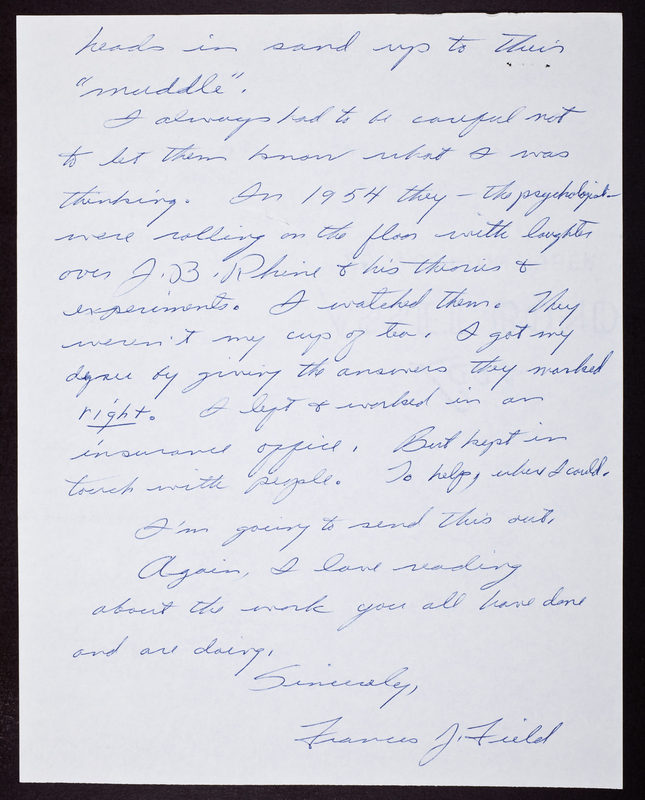 heads in sand up to their
"muddle".
I always had to be careful not
to let them know what I was
thinking. In 1954 they - the psychologist-
were rolling on the floor with laughter
over J.B. Rhine & his theories &
experiments. I watched them. They
weren't my cup of tea. I got my
degree by giving the answers they marked
right. I left & worked in an
insurance office. But kept in
touch with people. To help, where I could.
I'm going to send this out.
Again, I love reading
about the work you all have done
and are doing.
Sincerely,
Frances J. Field